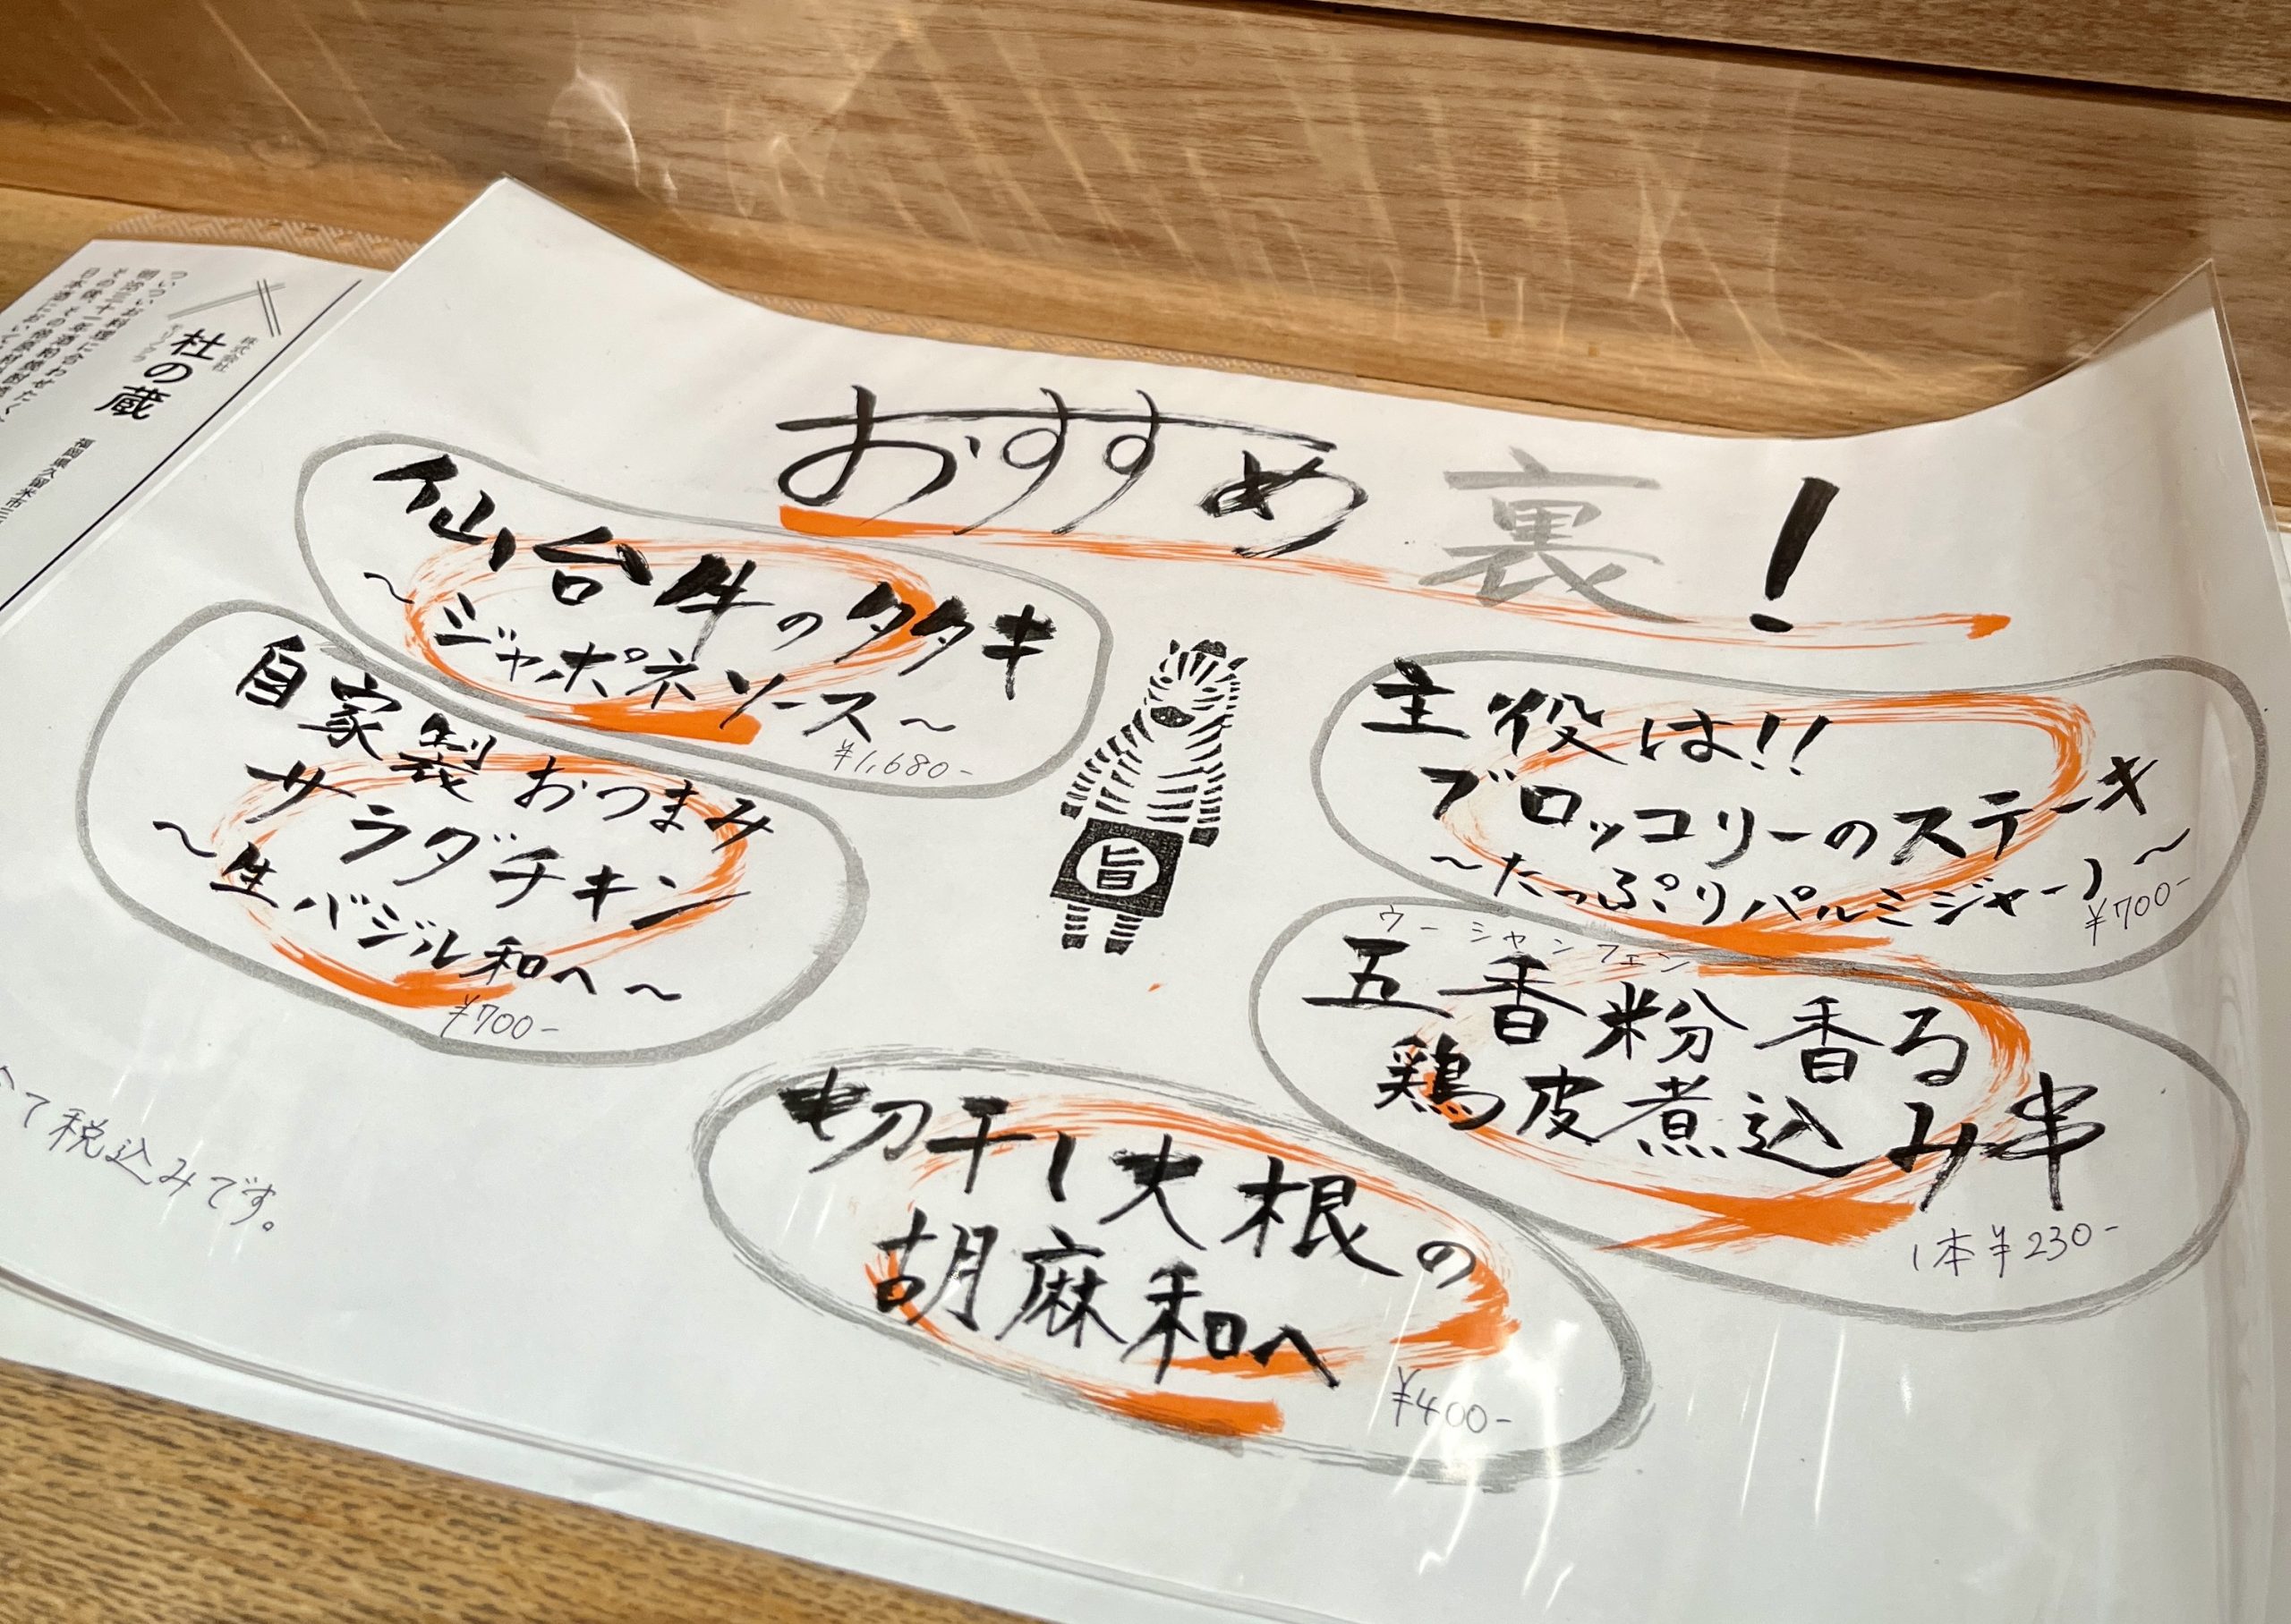 おすすめ 裏!
仙台牛のタタキ
～ジャポネソース～
¥1,680-
自家製おつまみ
サラダチキン
～生バジル和へ～
¥700-
旨
主役は!!
ブロッコリーのステーキ
～たっぷりパルミジャーノ～
¥700-
ウーシャンフェン
五香粉香る
鶏皮煮込み串
1本¥230-
切干し大根の
胡麻和へ
¥400-
て税込みです。
株式会社
杜の蔵
もりのくら